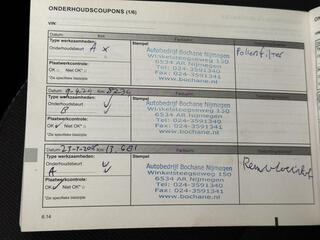 ONDERHOUDSCOUPONS (1/6)
VIN:
Datum: Km: Factuurnr.:
Type werkzaamheden: Stempel
Onderhoudsbeurt A x
Autobedrijf Bochane Nijmegen
Winkelsteegseweg 150
6534 AR Nijmegen
Tel: 024-3591340
Fax: 024-3594341
www.bochane.nl
Pollenfilter
Plaatwerkcontrole:
OK □ Niet OK* □
*Zie specifieke bladzijde
Datum: Km: Factuurnr.:
Type werkzaamheden: Stempel
Onderhoudsbeurt
B
Autobedrijf Bochane Nijmegen
Winkelsteegseweg 150
6534 AR Nijmegen
Tel: 024-3591340
Fax: 024-3594341
www.bochane.nl
Plaatwerkcontrole:
OK Niet OK* □
*Zie specifieke bladzijde
Datum: Km: Factuurnr.:
Type werkzaamheden: Stempel
Onderhoudsbeurt
A
Autobedrijf Bochane Nijmegen
Winkelsteegseweg 150
6534 AR Nijmegen
Tel: 024-3591340
Fax: 024-3594341
www.bochane.nl
Remvloeistof
Plaatwerkcontrole:
OK Niet OK* □
*Zie specifieke bladzijde
6.14